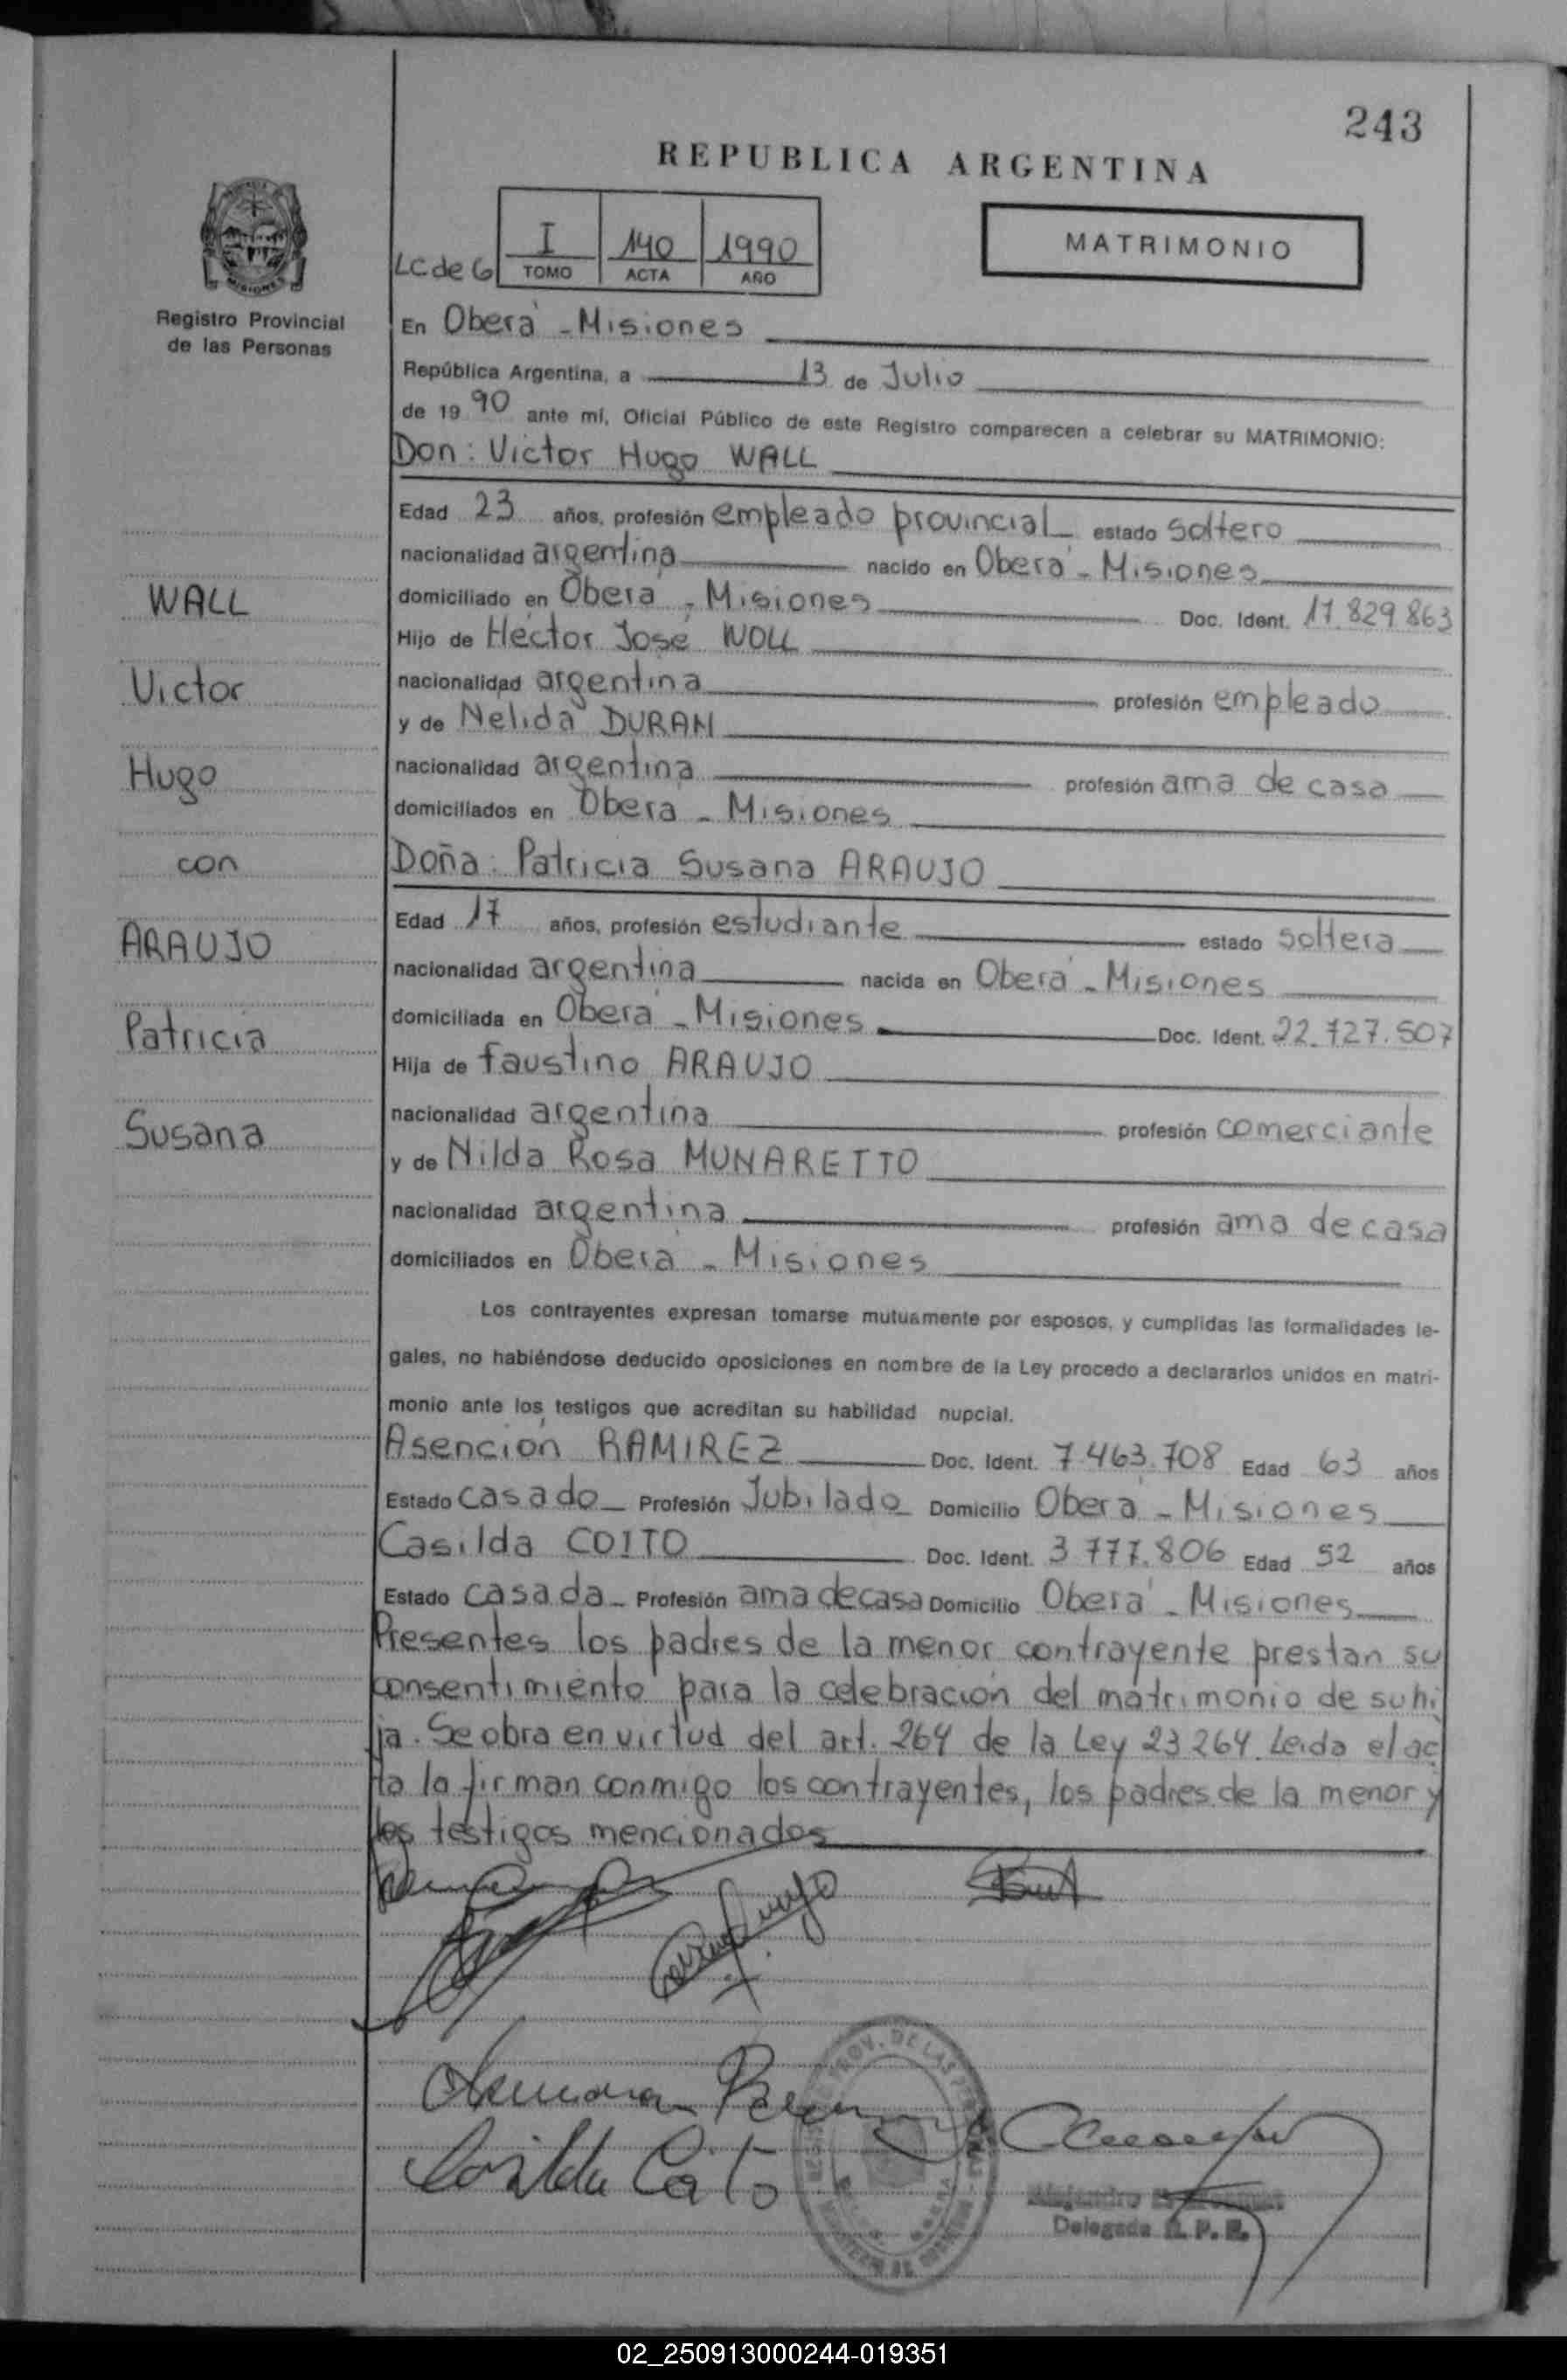 243
REPUBLICA ARGENTINA
MATRIMONIO
LC de G
I 140 1990
TOMO ACTA AÑO
Registro Provincial
de las Personas
En Oberá - Misiones
República Argentina, a 13 de Julio
de 1990 ante mí, Oficial Público de este Registro comparecen a celebrar su MATRIMONIO:
Don: Victor Hugo WALL
Edad 23 años, profesión empleado provincial estado soltero
nacionalidad argentina nacido en Oberá - Misiones
domiciliado en Oberá - Misiones Doc. Ident. 17.829.863
Hijo de Héctor José WOLL
nacionalidad argentina profesión empleado
y de Nelida DURAN
nacionalidad argentina profesión ama de casa
domiciliados en Oberá - Misiones
Doña: Patricia Susana ARAUJO
Edad 17 años, profesión estudiante estado soltera
nacionalidad argentina nacida en Oberá - Misiones
domiciliada en Oberá - Misiones Doc. Ident. 22.727.507
Hija de Faustino ARAUJO
nacionalidad argentina profesión comerciante
y de Nilda Rosa MUNARETTO
nacionalidad argentina profesión ama de casa
domiciliados en Oberá - Misiones
Los contrayentes expresan tomarse mutuamente por esposos, y cumplidas las formalidades le-
gales, no habiéndose deducido oposiciones en nombre de la Ley procedo a declararlos unidos en matri-
monio ante los testigos que acreditan su habilidad nupcial.
Asención RAMIREZ Doc. Ident. 7.463.708 Edad 63 años
Estado casado Profesión Jubilado Domicilio Oberá - Misiones
Casilda COITO Doc. Ident. 3.777.806 Edad 52 años
Estado casada Profesión ama de casa Domicilio Oberá - Misiones
Presentes los padres de la menor contrayente prestan su
consentimiento para la celebración del matrimonio de su hi
ja. Se obra en virtud del art. 264 de la Ley 23264. Leida el ac
ta la firman conmigo los contrayentes, los padres de la menor y
los testigos mencionados
WALL
Victor
Hugo
con
ARAUJO
Patricia
Susana
Casilda Coito
Delegada R. P. P.
02_250913000244-019351